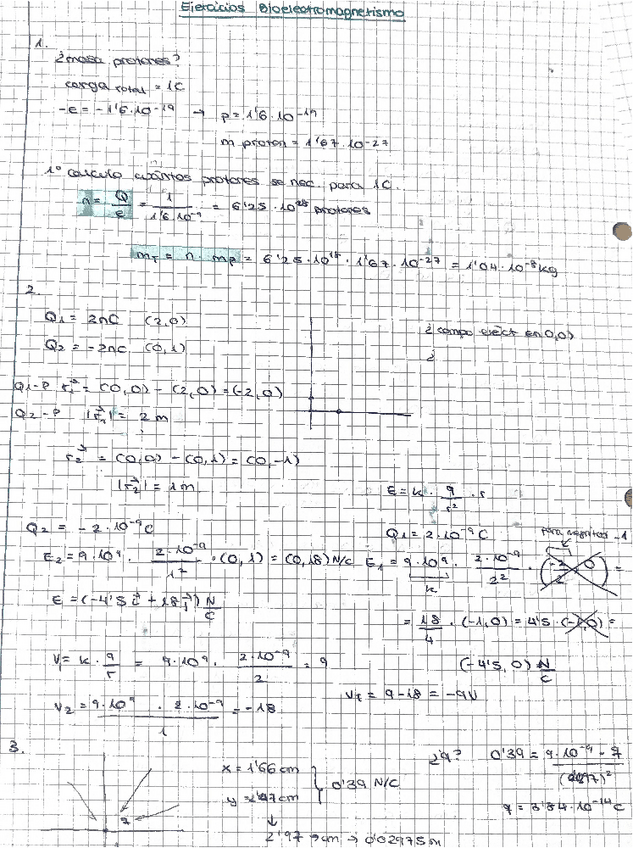 Ejercicios Bioelectromagnetismo
1.
¿masa protones?
carga total = 1C
-e = -1'6·10⁻¹⁹ → p = 1'6·10⁻¹⁹
m proton = 1'67·10⁻²⁷
1º calculo cuántos protones se nec. para 1C.
n = Q/e = 1/1'6·10⁻⁹ = 6'25·10¹⁸ protones
m_T = n · m_p = 6'25·10¹⁸ · 1'67·10⁻²⁷ = 1'04·10⁻⁸ kg
2.
Q₁ = 2nC (2,0) ¿campo eléct en 0,0)
Q₂ = -2nC (0,1) ¿
Q₁-P r₁ = (0,0) - (2,0) = (-2,0)
Q₂-P |r₁| = 2 m
r₂ = (0,0) - (0,1) = (0,-1)
|r₂| = 1m
E = k · q/r² · r
Q₂ = -2·10⁻⁹C Q₁ = 2·10⁻⁹C
E₂ = 9·10⁹ · 2·10⁻⁹/1² · (0,1) = (0,18) N/C E₁ = 9·10⁹ · 2·10⁻⁹/2² · (-2/2, 0) =
k
E = (-4'5 i + 18 j) N/C = 18/4 · (-1,0) = 4'5 · (-1,0) =
(-4'5, 0) N/C
V₁ = k · q/r = 9·10⁹ · 2·10⁻⁹/2 = 9
V_T = 9-18 = -9V
V₂ = 9·10⁹ · 2·10⁻⁹/1 = -18
3.
x = 1'66 cm
0'39 N/C
¿q? 0'39 = 9·10⁻⁹ · q
q = 3'84·10⁻¹⁴ C
2'97 cm → 0'02975m